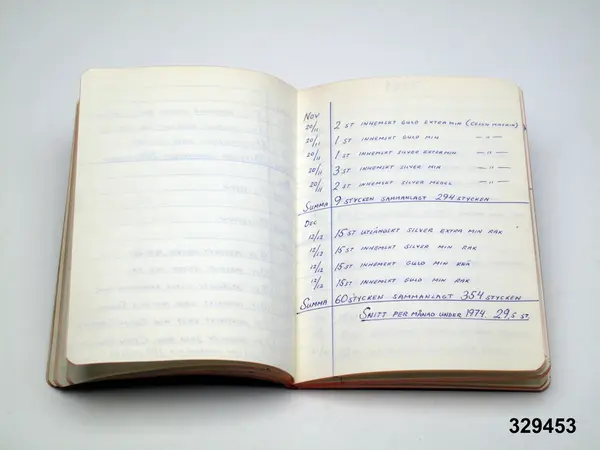 Nov
20/11 2 ST INHEMSKT GULD EXTRA MIN (EGEN MASKIN)
20/11 1 ST INHEMSKT GULD MIN — " —
20/11 1 ST INHEMSKT SILVER EXTERMIN — " —
20/11 3 ST INHEMSKT SILVER MIN — " —
20/11 2 ST INHEMSKT SILVER MEDEL — " —
SUMMA 9 STYCKEN SAMMANLAGT 294 STYCKEN
DEC
12/12 15 ST UTLÄNDSKT SILVER EXTRA MIN RAK
12/12 15 ST INHEMSKT SILVER MIN RAK
12/12 15 ST INHEMSKT GULD MIN RAK
12/12 15 ST INHEMSKT GULD MIN RAK
SUMMA 60 STYCKEN SAMMANLAGT 354 STYCKEN
SNITT PER MÅNAD UNDER 1974. 29,5 ST.
329453